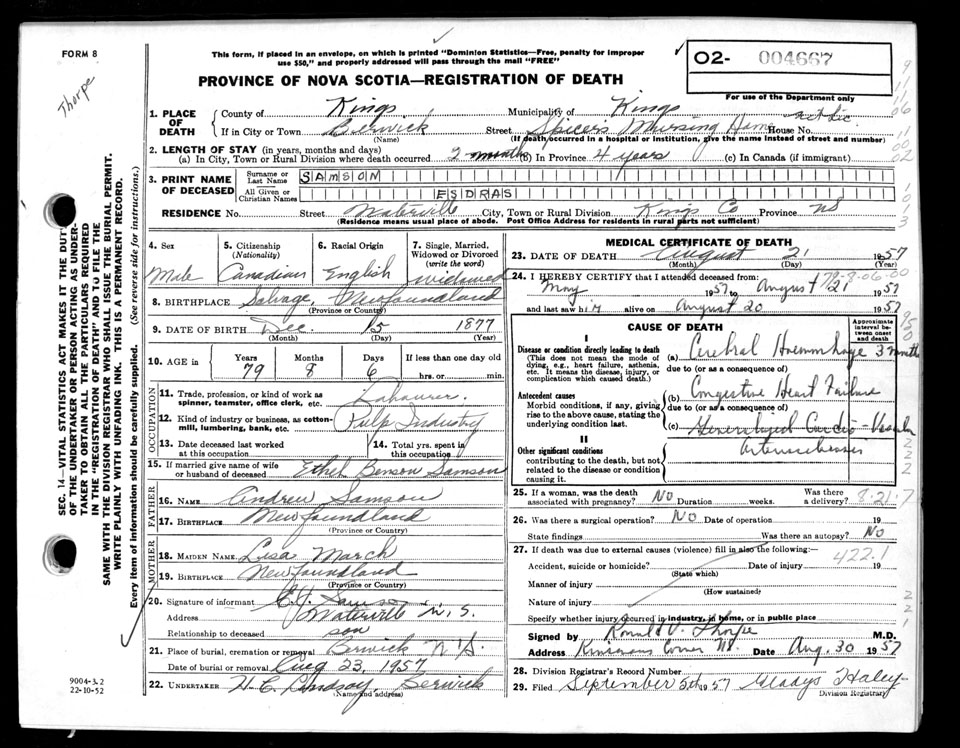 FORM 8
Thorpe
This form, if placed in an envelope, on which is printed "Dominion Statistics—Free, penalty for improper
use $50," and properly addressed will pass through the mail "FREE"
PROVINCE OF NOVA SCOTIA—REGISTRATION OF DEATH
02- 004667
For use of the Department only
1. PLACE OF DEATH
County of Kings Municipality of Kings
If in City or Town Berwick Street Spicers Nursing Home House No.
(Name) (If death occurred in a hospital or institution, give the name instead of street and number)
2. LENGTH OF STAY (in years, months and days)
(a) In City, Town or Rural Division where death occurred 2 months (b) In Province 4 years (c) In Canada (if immigrant)
3. PRINT NAME OF DECEASED
Surname or Last Name SAMSON
All Given or Christian Names ESDRAS
RESIDENCE No. Street Waterville City, Town or Rural Division Kings Co Province NS
(Residence means usual place of abode. Post Office Address for residents in rural parts not sufficient)
4. Sex Male
5. Citizenship (Nationality) Canadian
6. Racial Origin English
7. Single, Married, Widowed or Divorced (write the word) widowed
8. BIRTHPLACE Salvage, Newfoundland
(Province or Country)
9. DATE OF BIRTH Dec. 15 1877
(Month) (Day) (Year)
10. AGE in Years 79 Months 8 Days 6 If less than one day old hrs. or min.
OCCUPATION
11. Trade, profession, or kind of work as spinner, teamster, office clerk, etc. Labourer.
12. Kind of industry or business, as cotton-mill, lumbering, bank, etc. Pulp Industry
13. Date deceased last worked at this occupation
14. Total yrs. spent in this occupation
15. If married give name of wife or husband of deceased Ethel Benson Samson
FATHER
16. NAME Andrew Samson
17. BIRTHPLACE Newfoundland
(Province or Country)
MOTHER
18. MAIDEN NAME Lisa March
19. BIRTHPLACE Newfoundland
(Province or Country)
20. Signature of informant E.J. Samson
Address Waterville N.S.
Relationship to deceased son
21. Place of burial, cremation or removal Berwick N.S.
Date of burial or removal Aug 23, 1957
22. UNDERTAKER H.C. Lindsay, Berwick
(Name and address)
MEDICAL CERTIFICATE OF DEATH
23. DATE OF DEATH August 21 1957
(Month) (Day) (Year)
24. I HEREBY CERTIFY that I attended deceased from:
May 1957 to August 21 1957
and last saw him alive on August 20 1957
CAUSE OF DEATH
Approximate interval between onset and death
I
Disease or condition directly leading to death
(This does not mean the mode of dying, e.g., heart failure, asthenia, etc. It means the disease, injury, or complication which caused death.)
(a) Cerebral Haemmhage 3 months
due to (or as a consequence of)
Antecedent causes
Morbid conditions, if any, giving rise to the above cause, stating the underlying condition last.
(b) Congestive Heart Failure
due to (or as a consequence of)
(c) Generalized Cardio-Vascular
II
Other significant conditions
contributing to the death, but not related to the disease or condition causing it.
Arteriosclerosis
25. If a woman, was the death associated with pregnancy? NO Duration weeks. Was there a delivery?
8-21-7
26. Was there a surgical operation? NO Date of operation 19
State findings Was there an autopsy? NO
27. If death was due to external causes (violence) fill in also the following:—
422.1
Accident, suicide or homicide? Date of injury 19
(State which)
Manner of injury
(How sustained)
Nature of injury
Specify whether injury occurred in industry, in home, or in public place
Signed by Ronald V. Thorpe M.D.
Address Kinsmans Corner NS. Date Aug. 30 1957
28. Division Registrar's Record Number
29. Filed September 5th 1957 Gladys Haley
Division Registrar
SEC. 14—VITAL STATISTICS ACT MAKES IT THE DUTY
OF THE UNDERTAKER OR PERSON ACTING AS UNDER-
TAKER TO OBTAIN ALL THE PARTICULARS REQUIRED
IN THE "REGISTRATION OF DEATH" AND TO FILE THE
SAME WITH THE DIVISION REGISTRAR WHO SHALL ISSUE THE BURIAL PERMIT.
WRITE PLAINLY WITH UNFADING INK. THIS IS A PERMANENT RECORD.
Every item of information should be carefully supplied. (See reverse side for instructions.)
9004-3.2
22-10-52